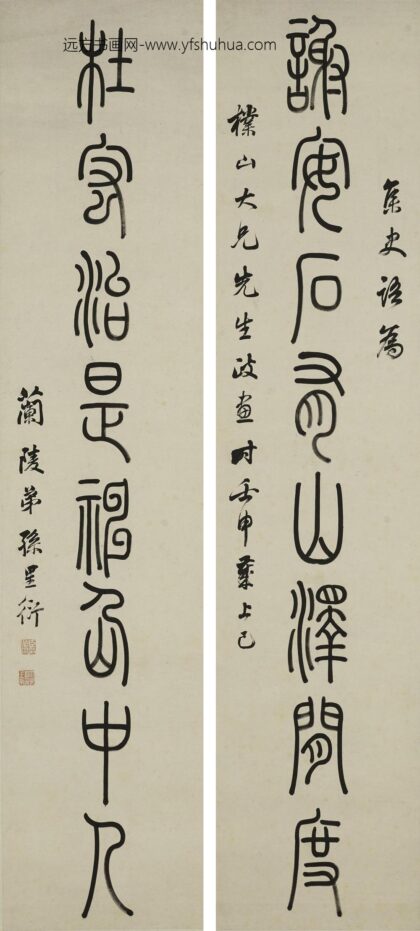 远方书画网-www.yfshuhua.com
集史語為
謝安石有山澤閒度
樸山大兄先生政畫时壬申歲上巳
杜宏治是神仚中人
蘭陵弟孫星衍